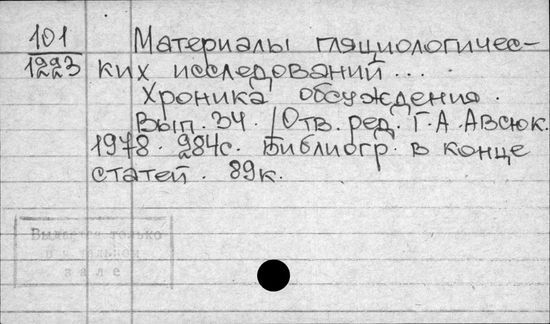 101 Материалы гляциологичес-
1223 ких исследований...
Хроника обсуждения.
Вып. 34. /Отв. ред. Г. А. Авсюк.
1978. 284с. Библиогр. в конце
статей. 89к.
Выдается только
в читальном
зале